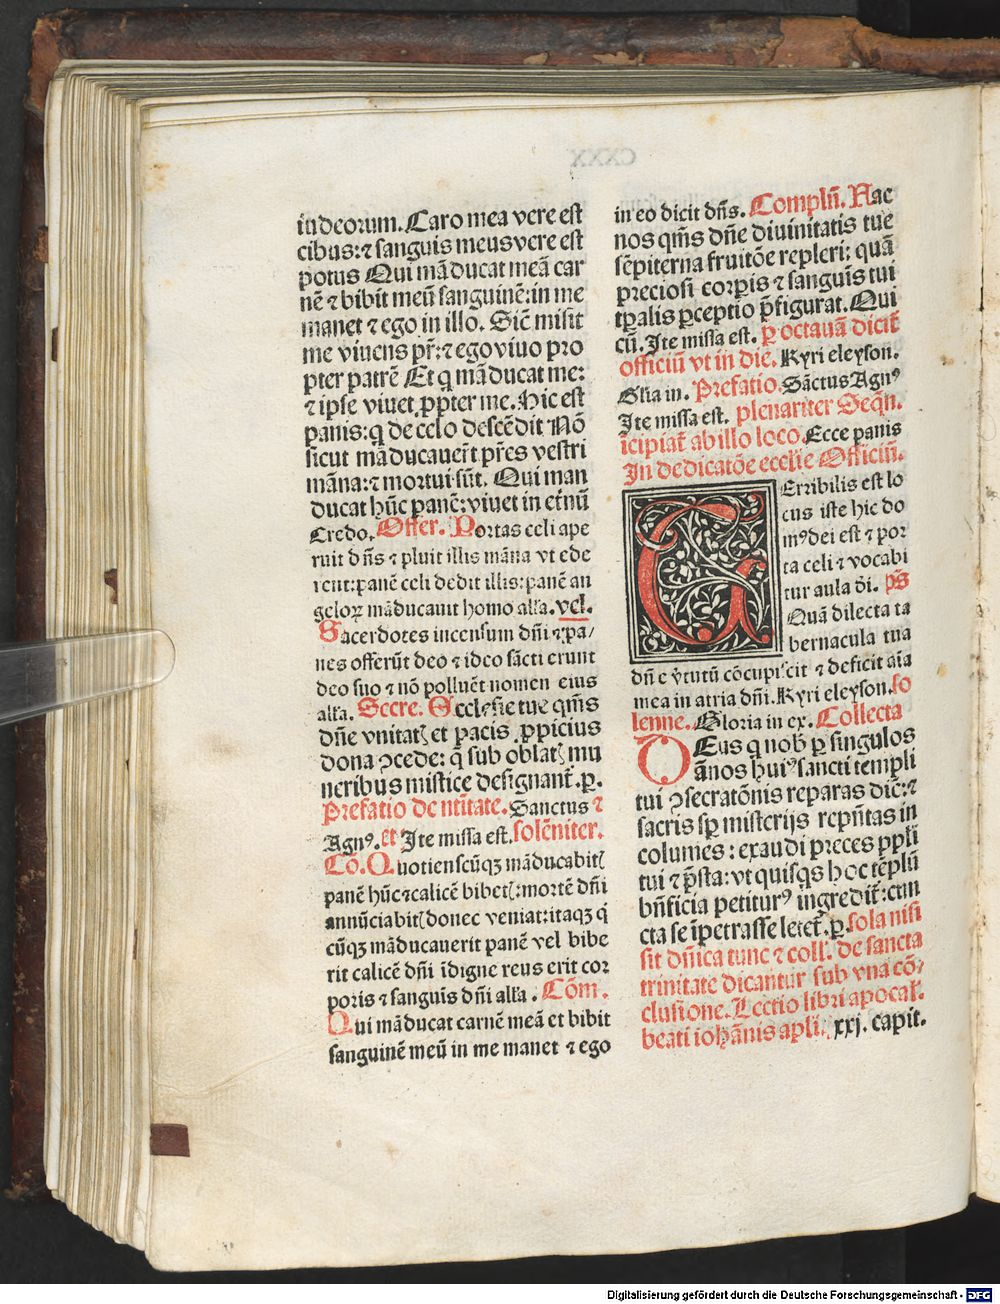 iudeorum. Caro mea vere est
cibus: ⁊ sanguis meus vere est
potus Qui mãducat meã car
nẽ ⁊ bibit meũ sanguinẽ: in me
manet ⁊ ego in illo. Sicẽ misit
me viuens pr̃: ⁊ ego viuo pro
pter patrẽ Et q mãducat me:
⁊ ipse viuet ꝓpter me. Hic est
panis: q de celo descẽdit Nõ
sicut mãducauer̃t pr̃es vestri
mãna: ⁊ mortui sũt. Qui man
ducat hũc panẽ: viuet in etr̃nũ
Credo. Offer. Portas celi ape
ruit dñs ⁊ pluit illis mãna vt ede
rent: panẽ celi dedit illis: panẽ an
geloꝝ mãducauit homo alla. vel.
Sacerdotes incensum dñi ⁊ pa/
nes offerũt deo ⁊ ideo sãcti erunt
deo suo ⁊ nõ polluẽt nomen eius
alla. Secre. Ecclesie tue qm̃s
dñe vnitatꝭ et pacis ꝓpicius
dona ꝯcede: q̃ sub oblatꝭ mu
neribus mistice designant̃. ꝑ.
Prefatio de ntitate. Sanctus ⁊
Agnꝰ. et Ite missa est. solẽniter.
Cõ. Quotienscũqꝫ mãducabitꝭ
panẽ hũc ⁊ calicẽ bibetꝭ: mortẽ dñi
annũciabitꝭ donec veniat: itaqꝫ q̇
cũqꝫ mãducauerit panẽ vel bibe
rit calicẽ dñi ĩdigne reus erit cor
poris ⁊ sanguis dñi alla. Cõm.
Qui mãducat carnẽ meã et bibit
sanguinẽ meũ in me manet ⁊ ego
in eo dicit dñs. Complñ. Fac
nos qm̃s dñe diuinitatis tue
sẽpiterna fruitõe repleri: quã
preciosi corꝑis ⁊ sanguĩs tui
tꝑalis ꝑceptio p̃figurat. Qui
cũ. Ite missa est. ꝑ octauã dicit̃
officiũ vt in die. Kyri eleyson.
Glia in. Prefatio. Sãctus Agnꝰ
Ite missa est. plenariter Seqñ.
ĩcipiat̃ ab illo loco. Ecce panis
In dedicatõe ecclie Officiũ.
Terribilis est lo
cus iste hic do
mꝰ dei est ⁊ por
ta celi ⁊ vocabi
tur aula dĩ. p̃s
Quã dilecta ta
bernacula tua
dñe v̓tutũ cõcupiscit ⁊ deficit aĩa
mea in atria dñi. Kyri eleyson. so
lenne. Gloria in ex. Collecta
DEus q nob̃ ꝑ singulos
ãnos huiꝰ sancti templi
tui ꝯsecratõnis reparas diẽ: ⁊
sacris sꝑ misterijs repñtas in
columes: exaudi preces ppli
tui ⁊ p̃sta: vt quisqs hoc tẽplũ
bñficia petiturꝰ ingredit̃: cun
cta se ĩpetrasse letet̃. ꝑ. sola nisi
sit dñica tunc ⁊ coll. de sancta
trinitate dicantur sub vna cõ/
clusione. Lectio libri apocal.
beati iohãnis apli. xxj. capit.
Digitalisierung gefördert durch die Deutsche Forschungsgemeinschaft - DFG